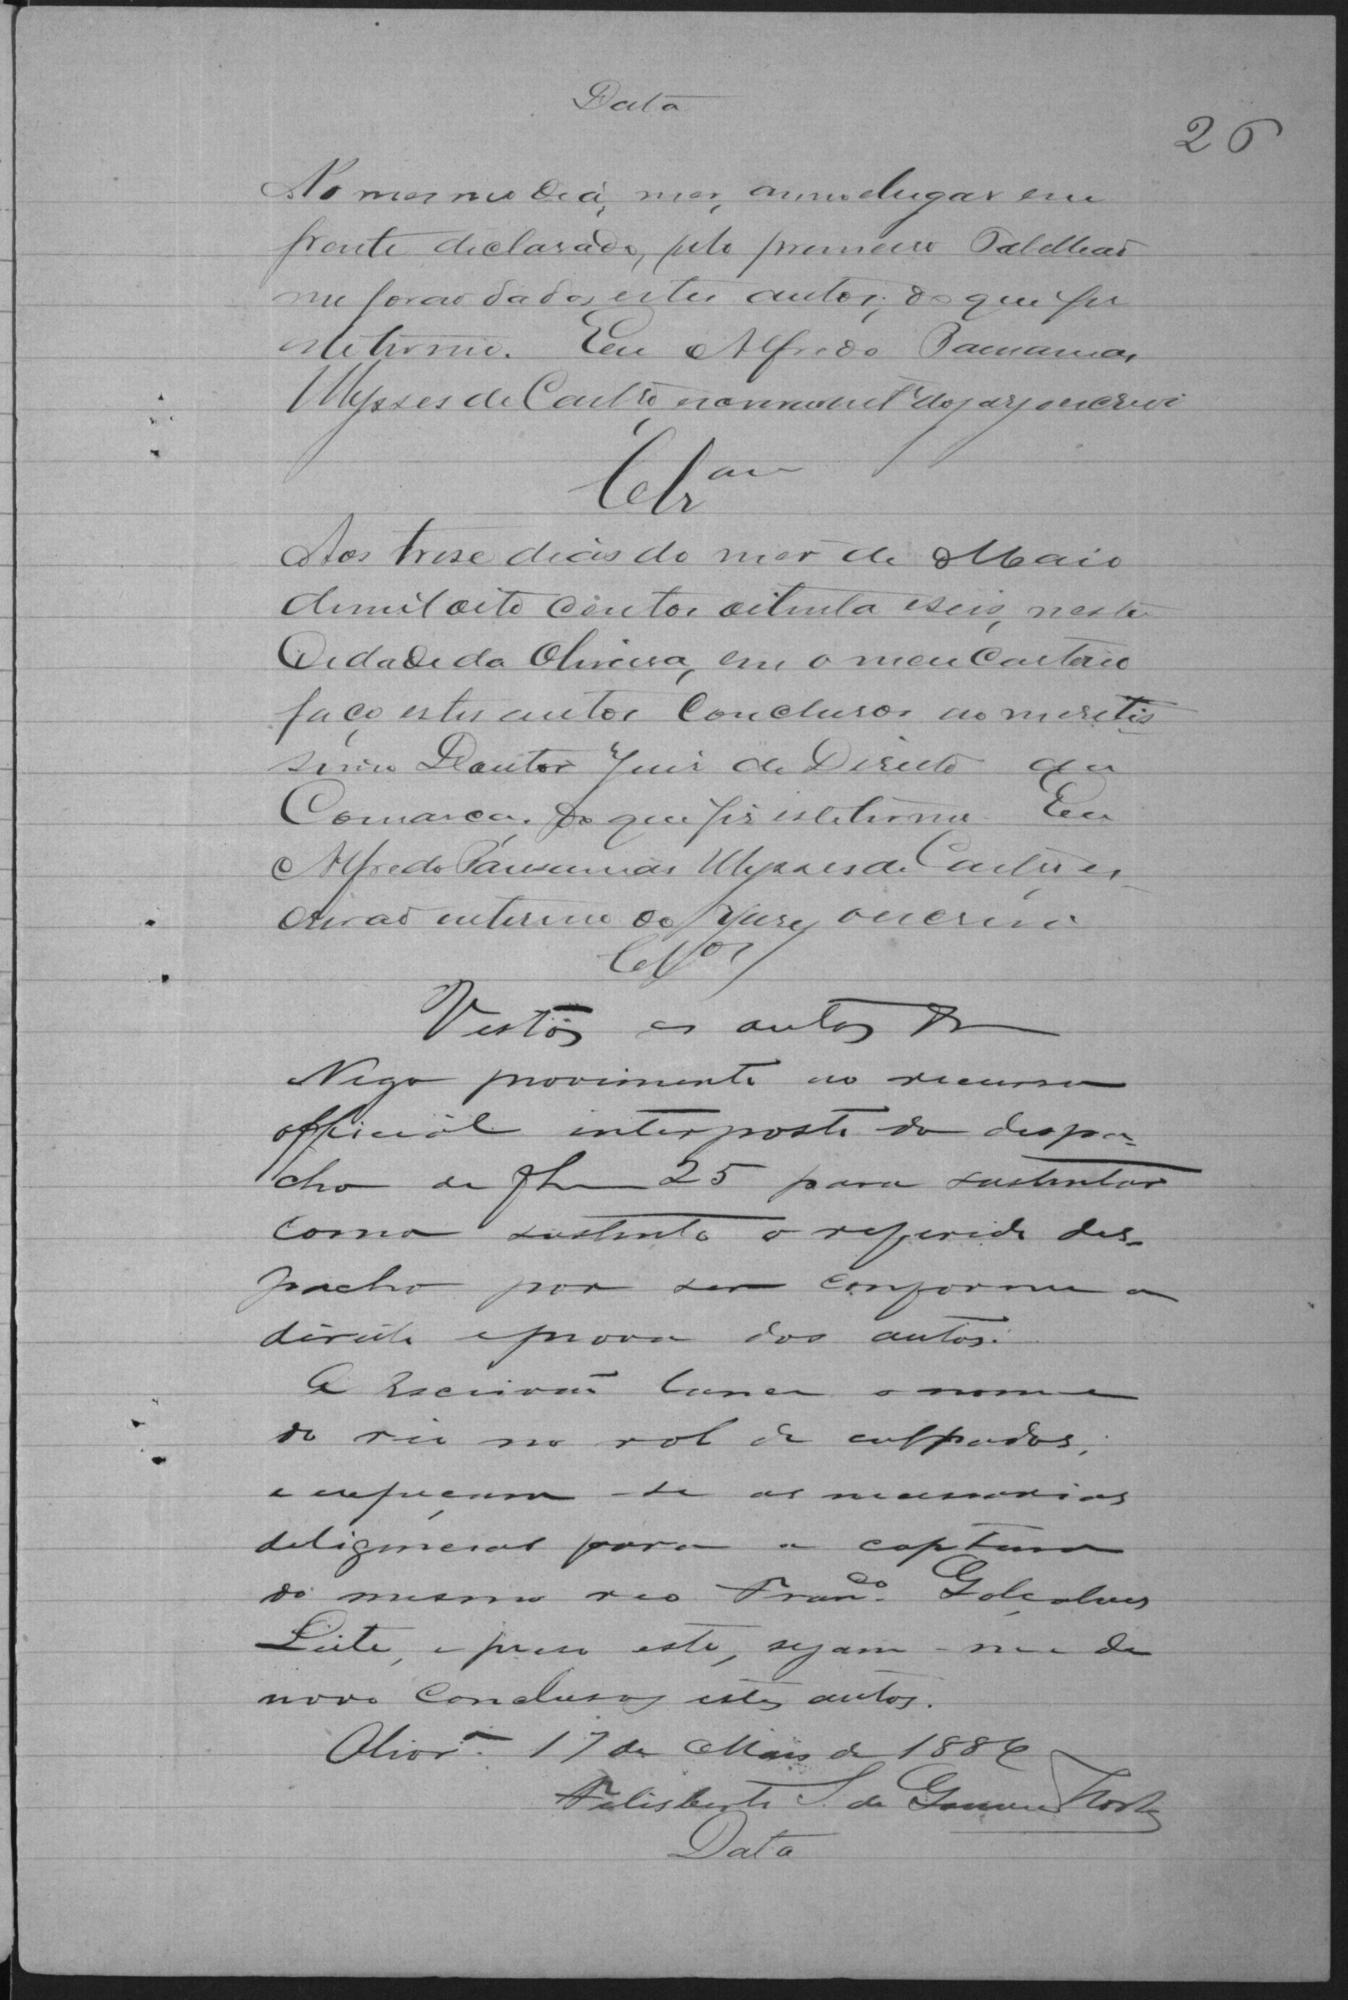 Data
26
No mesmo dia, mes, anno e lugar em
frente declarado, pelo primeiro Tabelleao
me forao dados estes autos; do que fis
este termo. Eu Alfredo Pausanias
Ulysses de Castro, escrevi
Clsam
Aos trese dias do mes de Maio
de mil oito centos oitenta e seis, nesta
Cidade da Oliveira, em o meu Cartorio
faço estes autos Conclusos ao meretis
simo Doutor Juis de Direito da
Comarca, do que fis este termo. Eu
Alfredo Pausanias Ulysses de Castro es
crivao interino do Jury o escrevi
Clsos
Vistos os autos
Nego provimento ao recurso
official interposto do despa=
cho de fl 25 para sustentar
como sustento o referido des-
pacho por ser conforme a
direito e prova dos autos.
O Escrivaõ lance o nome
do reo no rol de culpados,
e expeçam-se as necessarias
deligencias para a captura
do mesmo reo Franco. Golçalves
Leite, e preso este, sejam-me de
novo Conclusos estes autos.
Olivra. 17 de Maio de 1886
Felisberto S. de Horta
Data